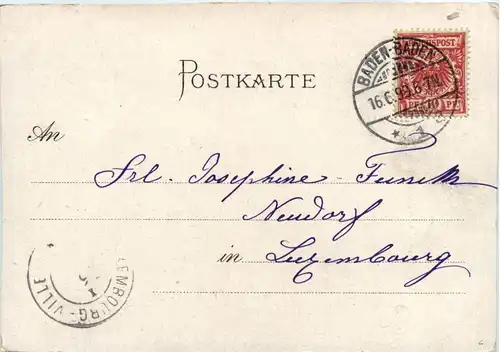 POSTKARTE
BADEN-BADEN
16.6.99.6-7N.
* 1
An
Frl. Josephine Funck
Neudorf
in Luxembourg
EMBOURG-VILLE